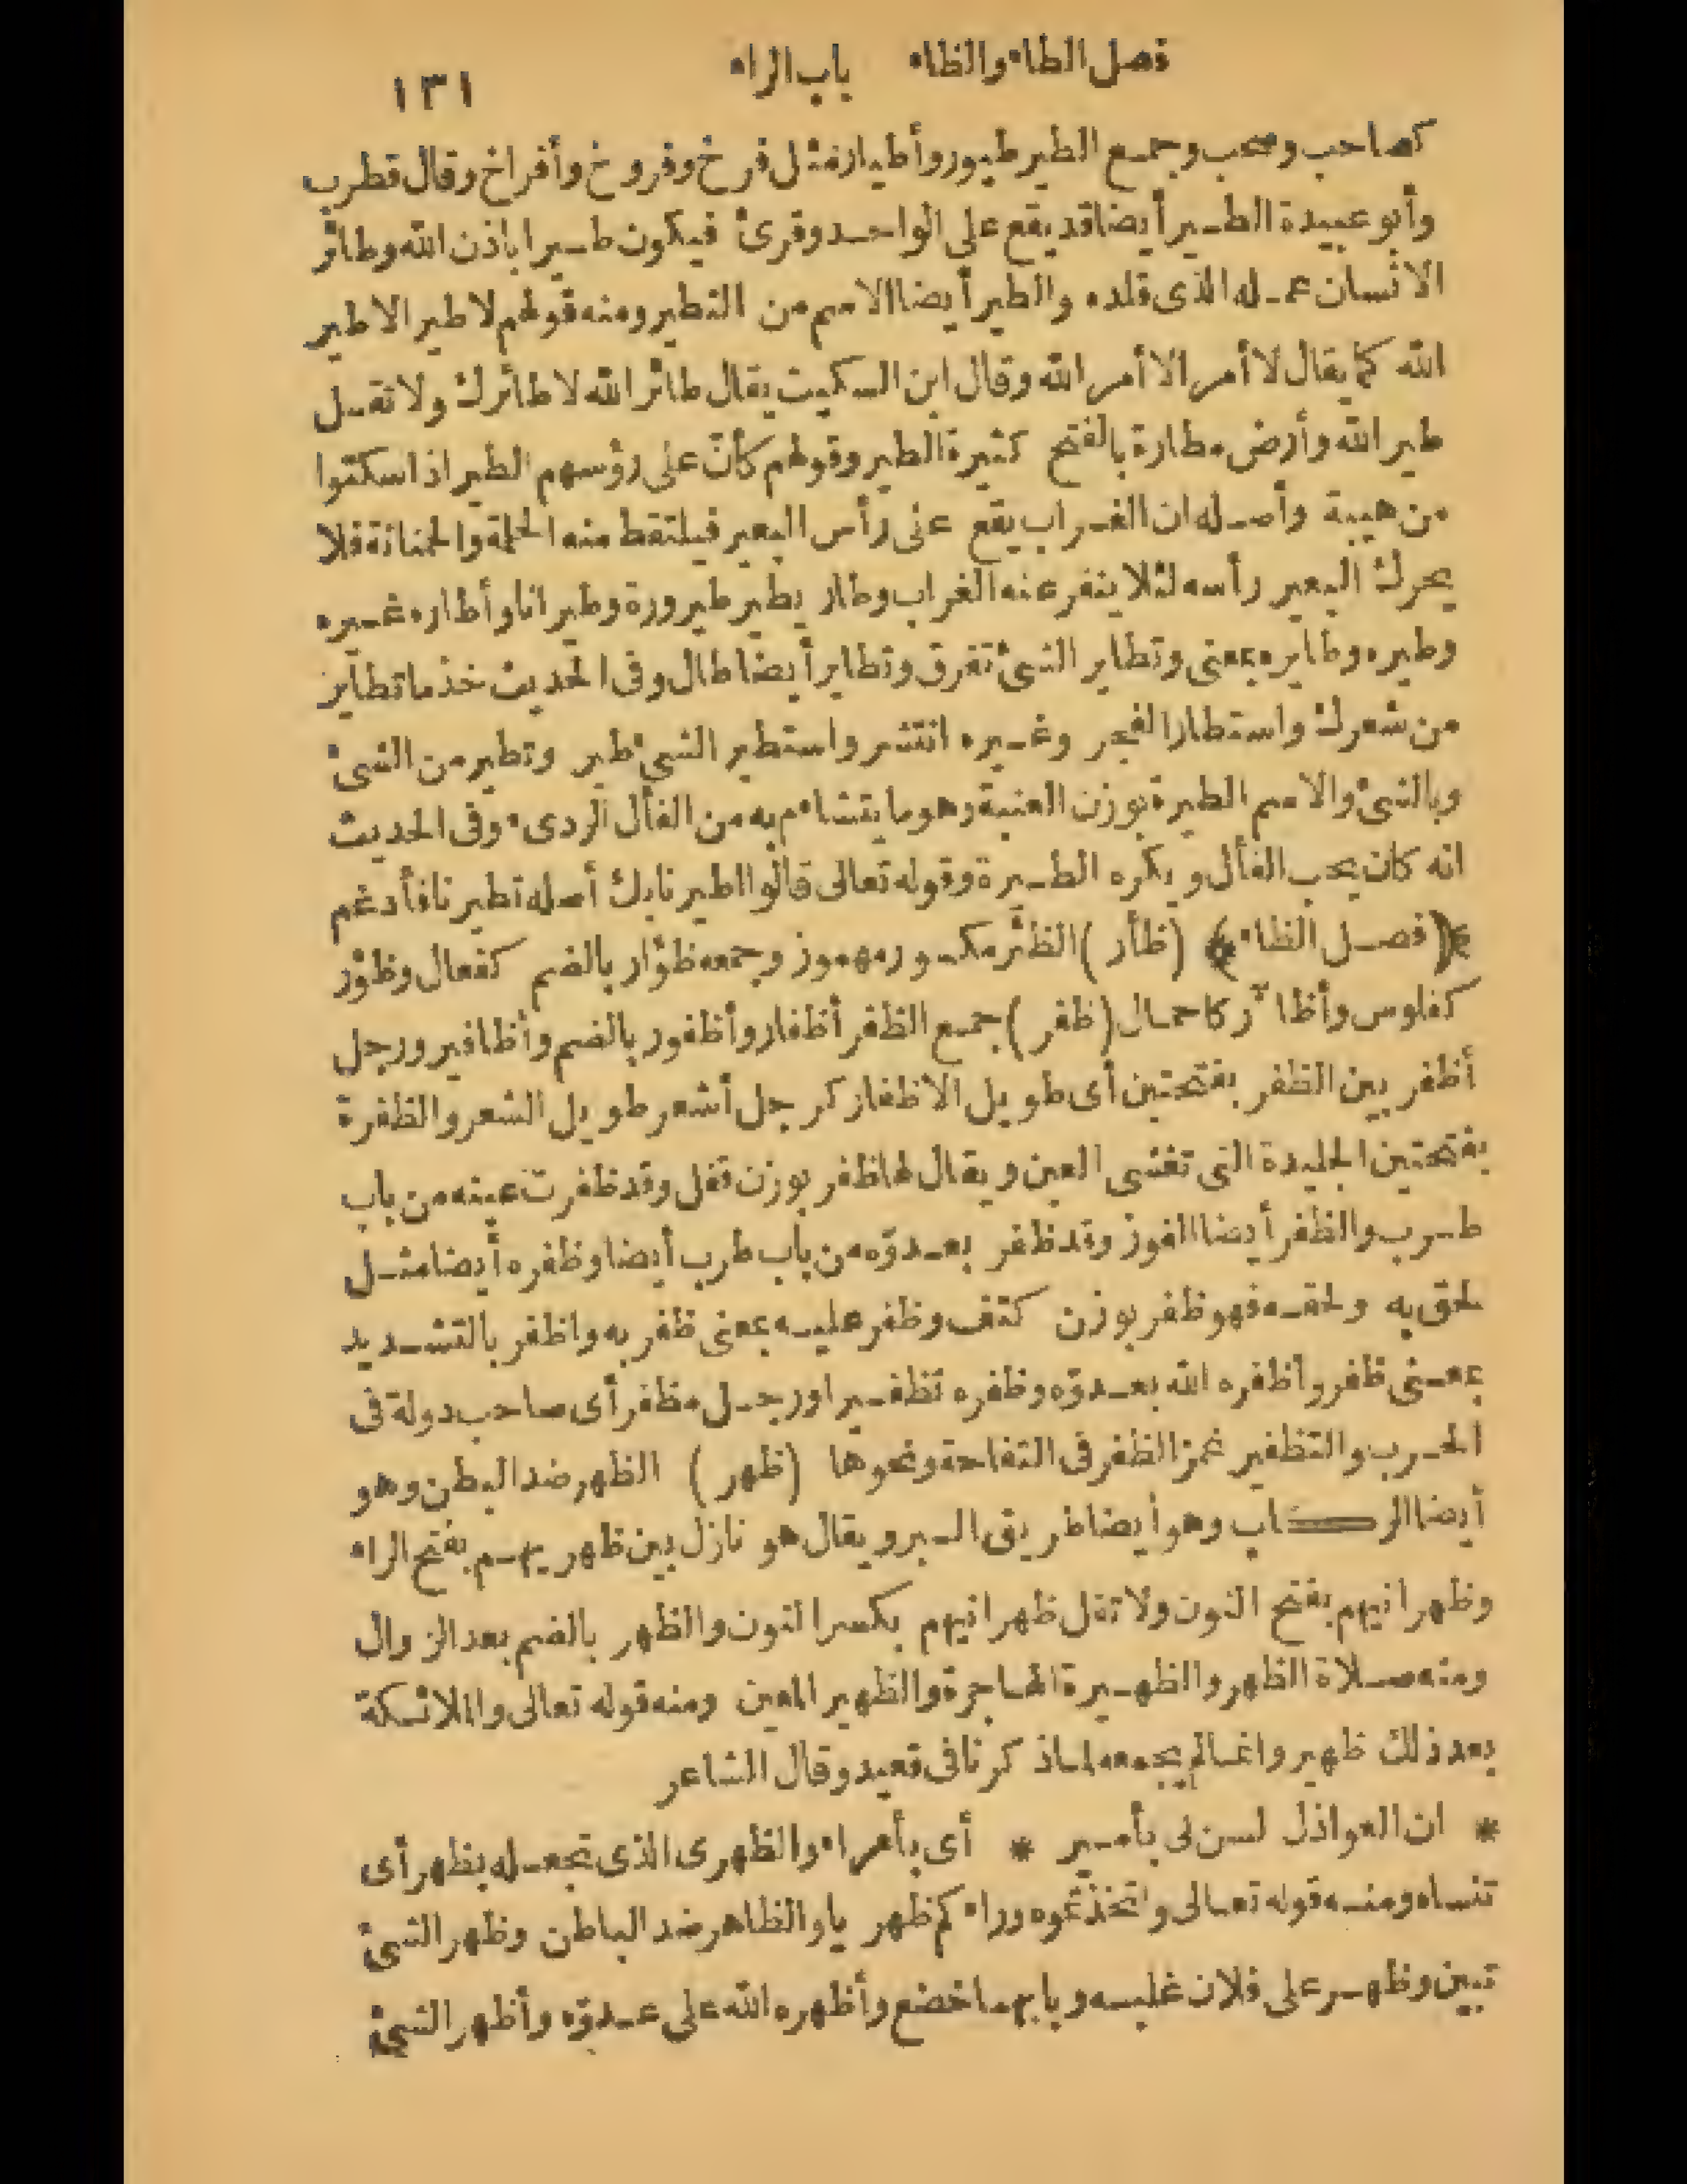 فصل الطاء والظاء باب الراء ١٣١
كصاحب وصحب وجمع الطير طيور وأطيار مثل فرخ وفروخ وأفراخ وقال قطرب
وأبو عبيدة الطير أيضا قد يقع على الواحد وقرئ فيكون طيرا باذن الله وطائر
الانسان عمله الذى قلده والطير أيضا الاسم من التطير ومنه قولهم لا طير الا طير
الله كما يقال لا أمر الا أمر الله وقال ابن السكيت يقال طائر الله لا طائرك ولا تقل
طير الله وأرض مطارة بالفتح كثيرة الطير وقولهم كأنّ على رؤسهم الطير اذا سكتوا
من هيبة وأصله ان الغراب يقع على رأس البعير فيلتقط منه الحلمة والحمنانة فلا
يحرك البعير رأسه لئلا ينفر عنه الغراب وطار يطير طيرورة وطيرانا وأطاره غيره
وطيره وطايره بمعنى وتطاير الشئ تفرق وتطاير أيضا طال وفى الحديث خذ ما تطاير
من شعرك واستطار الفجر وغيره انتشر واستطير الشئ طير وتطير من الشئ
وبالشئ والاسم الطيرة بوزن العنبة وهو ما يتشاءم به من الفأل الردىء وفى الحديث
انه كان يحب الفأل ويكره الطيرة وقوله تعالى قالوا اطيرنا بك أصله تطيرنا فأدغم
﴿فصل الظاء﴾ (ظأر) الظئر مكسور مهموز وجمعه ظؤار بالضم كفعال وظؤر
كفلوس وأظآر كاحمال (ظفر) جمع الظفر أظفار وأظفور بالضم وأظافير ورجل
أظفر بين الظفر بفتحتين أى طويل الاظفار كرجل أشعر طويل الشعر والظفرة
بفتحتين الجليدة التى تغشى العين ويقال لها ظفر بوزن قفل وقد ظفرت عينه من باب
طرب والظفر أيضا الفوز وقد ظفر بعدوّه من باب طرب أيضا وظفره أيضا مثل
لحق به ولحقه فهو ظفر بوزن كتف وظفر عليه بمعنى ظفر به واظفر بالتشديد
بمعنى ظفر وأظفره الله بعدوّه وظفره تظفيرا ورجل مظفر أى صاحب دولة فى
الحرب والتظفير غمز الظفر فى التفاحة ونحوها (ظهر) الظهر ضد البطن وهو
أيضا الركاب وهو أيضا طريق البر ويقال هو نازل بين ظهريهم بفتح الراء
وظهرانيهم بفتح النون ولا تقل ظهرانيهم بكسر النون والظهر بالضم بعد الزوال
ومنه صلاة الظهر والظهيرة الهاجرة والظهير المعين ومنه قوله تعالى والملائكة
بعد ذلك ظهير وانما لم يجمعه لما ذكرنا فى قعيد وقال الشاعر
* ان العواذل لسن لى بأمير * أى بأمراء والظهرى الذى تجعله بظهر أى
تنساه ومنه قوله تعالى واتخذتموه وراءكم ظهريا والظاهر ضد الباطن وظهر الشئ
تبين وظهر على فلان غلبه وبابهما خضع وأظهره الله على عدوّه وأظهر الشئ